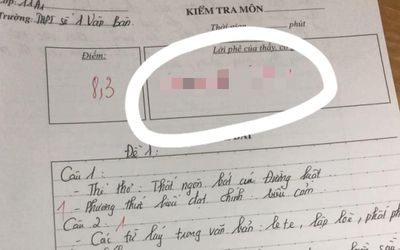 Lớp: 11A1
Trường: THPT số 1 Văn Bàn.
KIỂM TRA MÔN
Thời gian phút
Điểm:
8,3
Lời phê của thầy, cô
BÀI
Đề 1:
Câu 1:
- Thể thơ: Thất ngôn bát cú Đường luật.
1 - Phương thức biểu đạt chính: biểu cảm.
Câu 2: 1
- Các từ láy trong văn bản: le te, lập lòe,